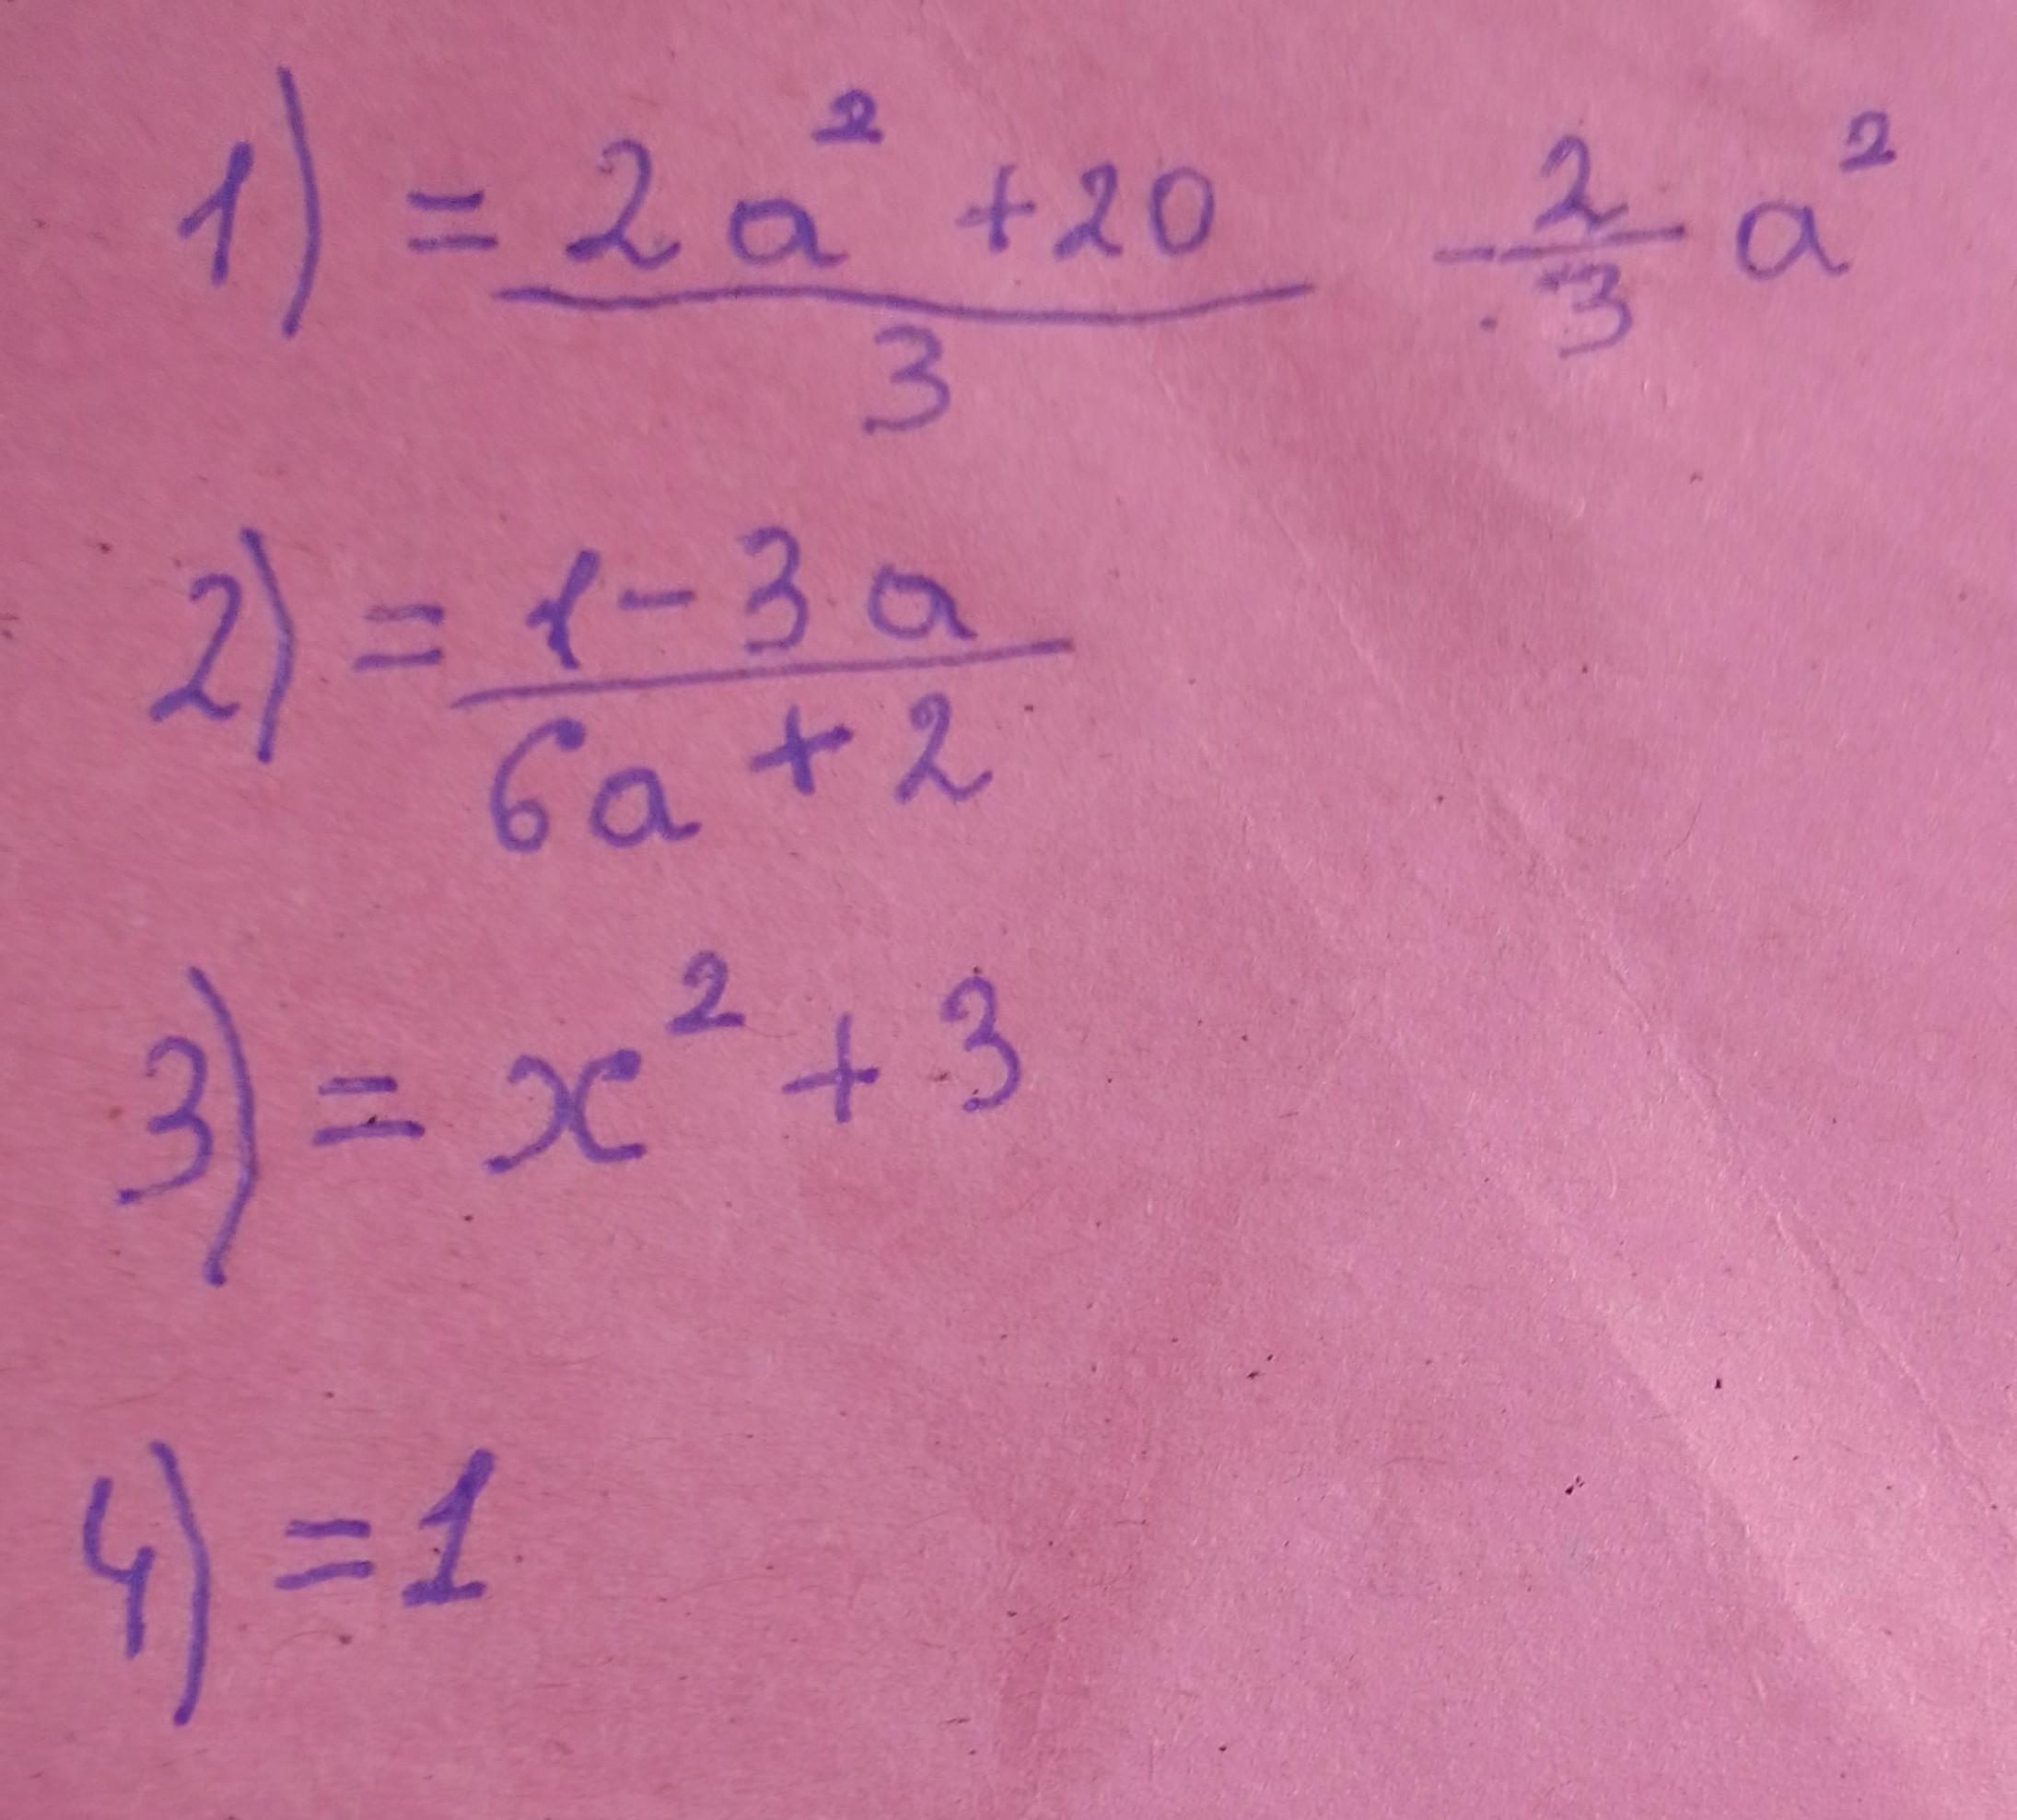 1) = (2a² + 20)/3 - 2/3 a²
2) = (1 - 3a)/(6a + 2)
3) = x² + 3
4) = 1